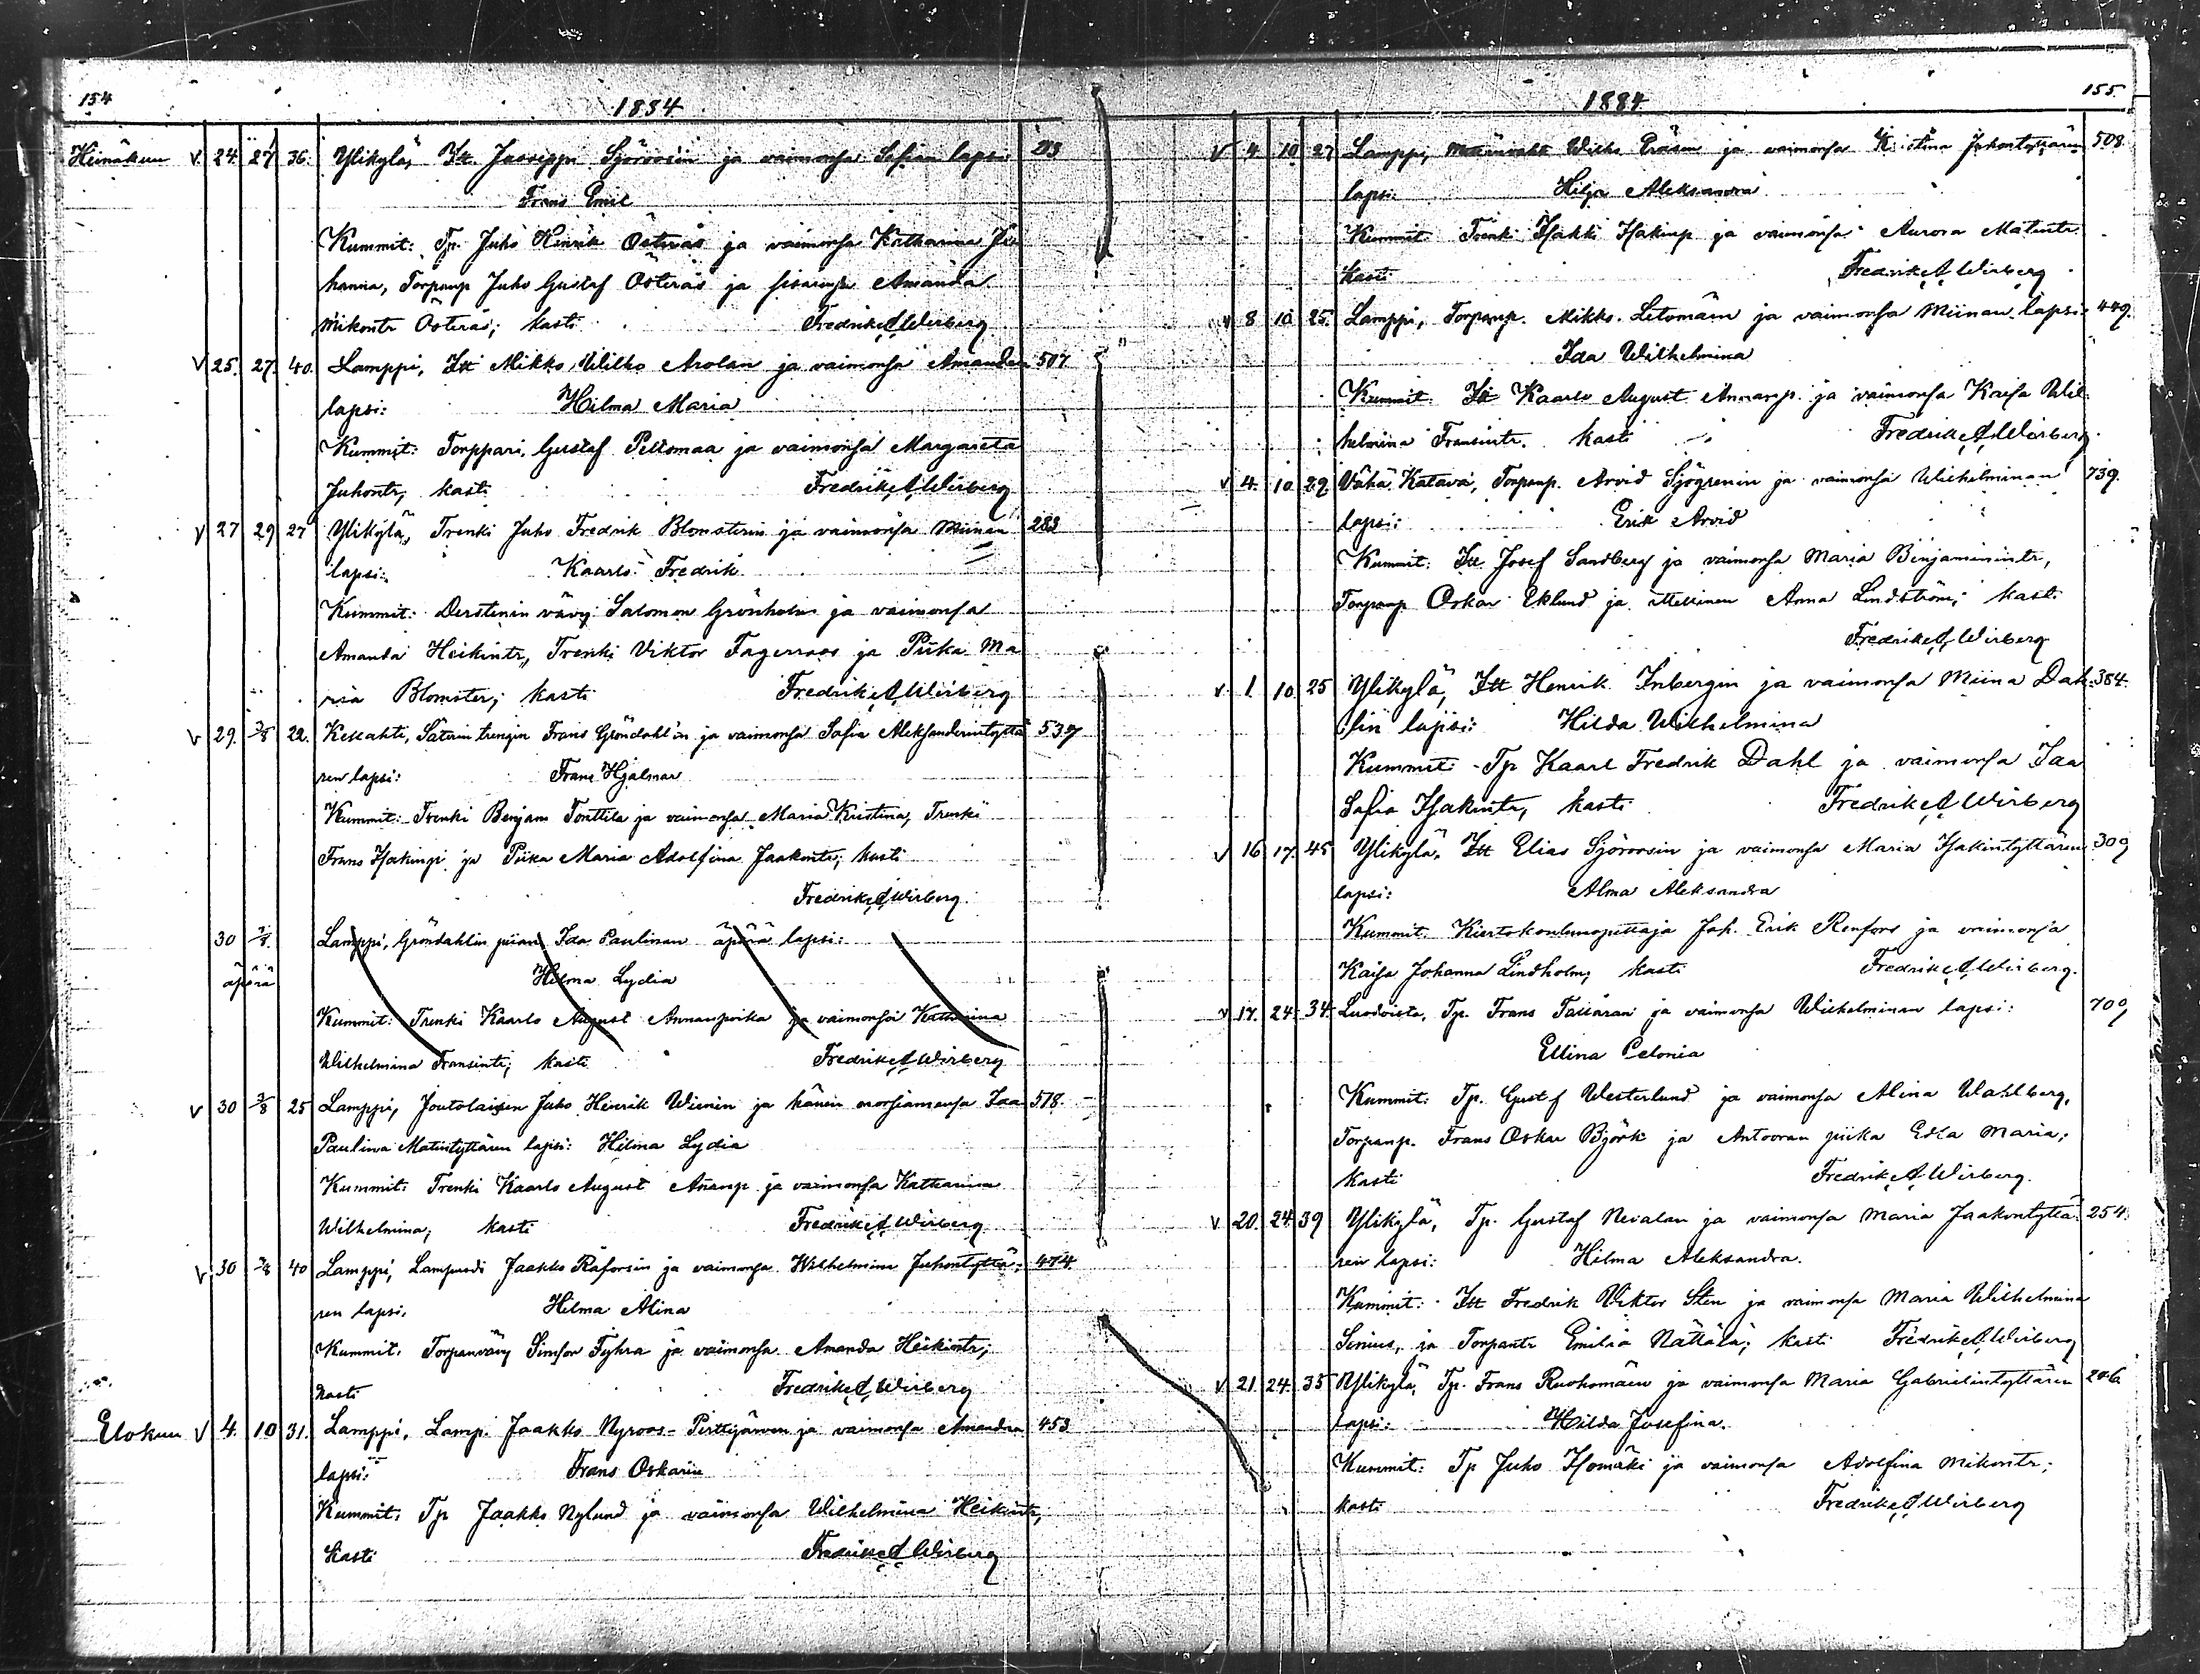 154
1884
Heinäkuu V 24. 27 36. Ylikylä, Itt. Juosippi Sjöroosin ja vaimonsa Sofian lapsi 293
Frans Emil
Kummit: Tp. Juho Henrik Österås ja vaimonsa Katharina Jo
hanna, Torpanp Juho Gustaf Österås ja sisarensa Amanda
Mikontr Österås; kasti Fredrik A Wirberg
V 25. 27. 40. Lamppi, Itt Mikko Wilho Arolan ja vaimonsa Amandan 507
lapsi: Hilma Maria
Kummit: Torppari Gustaf Peltomaa ja vaimonsa Margareta
Juhontr, kasti Fredrik A Wirberg
V 27 29 27 Ylikylä, Trenki Juho Fredrik Blomsterin ja vaimonsa Miinan 283
lapsi: Kaarlo Fredrik
Kummit: vävy Salomon Grönholm ja vaimonsa
Amanda Heikintr, Trenki Viktor Fagerroos ja Piika Ma
ria Blomster; kasti Fredrik A Wirberg
V 29. 3/8 22. Keskahti, Säterin trengin Frans Gröndahl'in ja vaimonsa Sofia Aleksanderintyttä 537
ren lapsi: Frans Hjalmar
Kummit: Trenki Benjam Tonttila ja vaimonsa Maria Kristina, Trenki
Frans Isakinp ja Piika Maria Adolfina Jaakontr; kasti
Fredrik A Wirberg.
30 3/8. Lamppi, Gröndahlin piian Ida Paulinan äpärä lapsi:
äpärä Hilma Lydia
Kummit: Trenki Kaarlo August Annanpoika ja vaimonsa Katharina
Wilhelmina Fransintr; kasti Fredrik A Wirberg
V 30 3/8 25 Lamppi, Joutolaisen Juho Henrik Wirnin ja hänen morsiamensa Ida 518
Paulina Matintyttären lapsi: Hilma Lydia
Kummit: Trenki Kaarlo August Annanp ja vaimonsa Katharina
Wilhelmina; kasti Fredrik A Wirberg
V 30 3/8 40 Lamppi, Lampuodi Jaakko Raforsin ja vaimonsa Wilhelmina Juhontyttä 474
ren lapsi: Hilma Alina
Kummit: Torpanvävy Simson Fyhra ja vaimonsa Amanda Heikintr;
kasti Fredrik A Wirberg
Elokuu V 4. 10 31. Lamppi, Lamp. Jaakko Nyroos-Perttijärven ja vaimonsa Amandan 453
lapsi: Frans Oskarin
Kummit: Tp Jaakko Nylund ja vaimonsa Wilhelmina Heikintr,
kasti Fredrik A Wirberg
155.
1884
V 4 10 27 Lamppi, Wilho Eräsin ja vaimonsa Kristina Juhontyttären 508
lapsi: Hilja Aleksandra
Kummit: Trenki Isakki Isakinp ja vaimonsa Aurora Matintr.
kasti Fredrik A Wirberg
V 8 10 25. Lamppi, Torpanp. Mikko Letomäen ja vaimonsa Miinan lapsi: 449.
Ida Wilhelmina
Kummit: Itt Kaarlo August Annanp. ja vaimonsa Kaisa Wil
helmina Fransintr. kasti Fredrik A Wirberg.
V 4. 10 29. Vähä Katava, Torpanp. Arvid Sjögrenin ja vaimonsa Wilhelminan 739.
lapsi: Erik Arvid
Kummit: Itt. Josef Sandberg ja vaimonsa Maria Benjaminintr,
Torpanp Oskar Eklund ja ittellinen Anna Lindström; kasti
Fredrik A Wirberg
V 1 10 25 Ylikylä, Itt Henrik Inbergin ja vaimonsa Miina Dah 384.
lin lapsi: Hilda Wilhelmina
Kummit: Tp Kaarl Fredrik Dahl ja vaimonsa Ida
Sofia Isakintr, kasti Fredrik A Wirberg
V 16 17. 45 Ylikylä, Itt Elias Sjöroosin ja vaimonsa Maria Isakintyttären 309
lapsi: Alma Aleksandra
Kummit: Kiertokoulunopettaja Joh. Erik Renfors ja vaimonsa
Kaisa Johanna Lindholm; kasti Fredrik A Wirberg.
V 17. 24. 34. Luodoista, Tp. Frans Takaran ja vaimonsa Wilhelminan lapsi: 709
Ellina Pelonia
Kummit: Tp. Gustf Westerlund ja vaimonsa Alina Wahlberg,
Torpanp. Frans Oskar Björk ja Antooran piika Edla Maria;
kasti Fredrik A Wirberg.
V 20. 24. 39 Ylikylä, Tp. Gustaf Nevalan ja vaimonsa Maria Jaakontyttä 254.
ren lapsi: Hilma Aleksandra.
Kummit: Itt Fredrik Viktor Sten ja vaimonsa Maria Wilhelmina
Senius, ja Torpantr Emilia Nättälä; kasti Fredrik A Wirberg
V 21. 24. 35 Ylikylä, Tp. Frans Ruohomäen ja vaimonsa Maria Gabrielintyttären 246
lapsi: Hilda Josefina.
Kummit: Tp Juho Isomäki ja vaimonsa Adolfina Mikontr;
kasti Fredrik A Wirberg